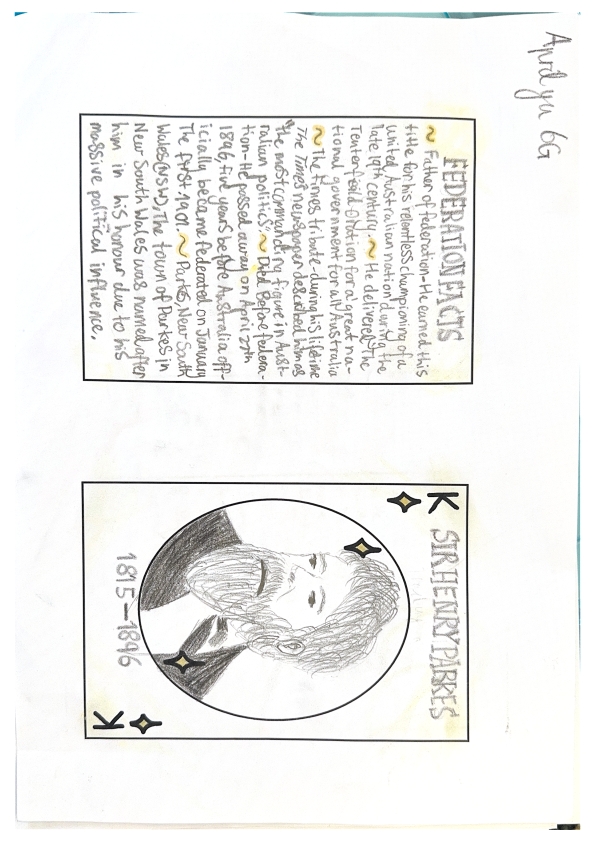 April yu 6G
FEDERATION FACTS
~ Father of federation-He earned this
title for his relentless championing of a
united Australian nation during the
late 19th century. ~ He delivered "The
Tenterfield Oration for a great na-
tional government for all Australia
~ The times tribute-during his lifetime
The Times newspaper described him as
"the most commanding figure in Aust-
ralian politics". ~ Died Before federa-
tion-He passed away on April 27th
1896, five years before Australia off-
icially became federated on January
The first 1901. ~ Parkes, New South
Wales(NSW), The town of Parkes in
New South Wales was named after
him in his honour due to his
massive political influence.
K
SIR HENRY PARKES
1815-1896
K